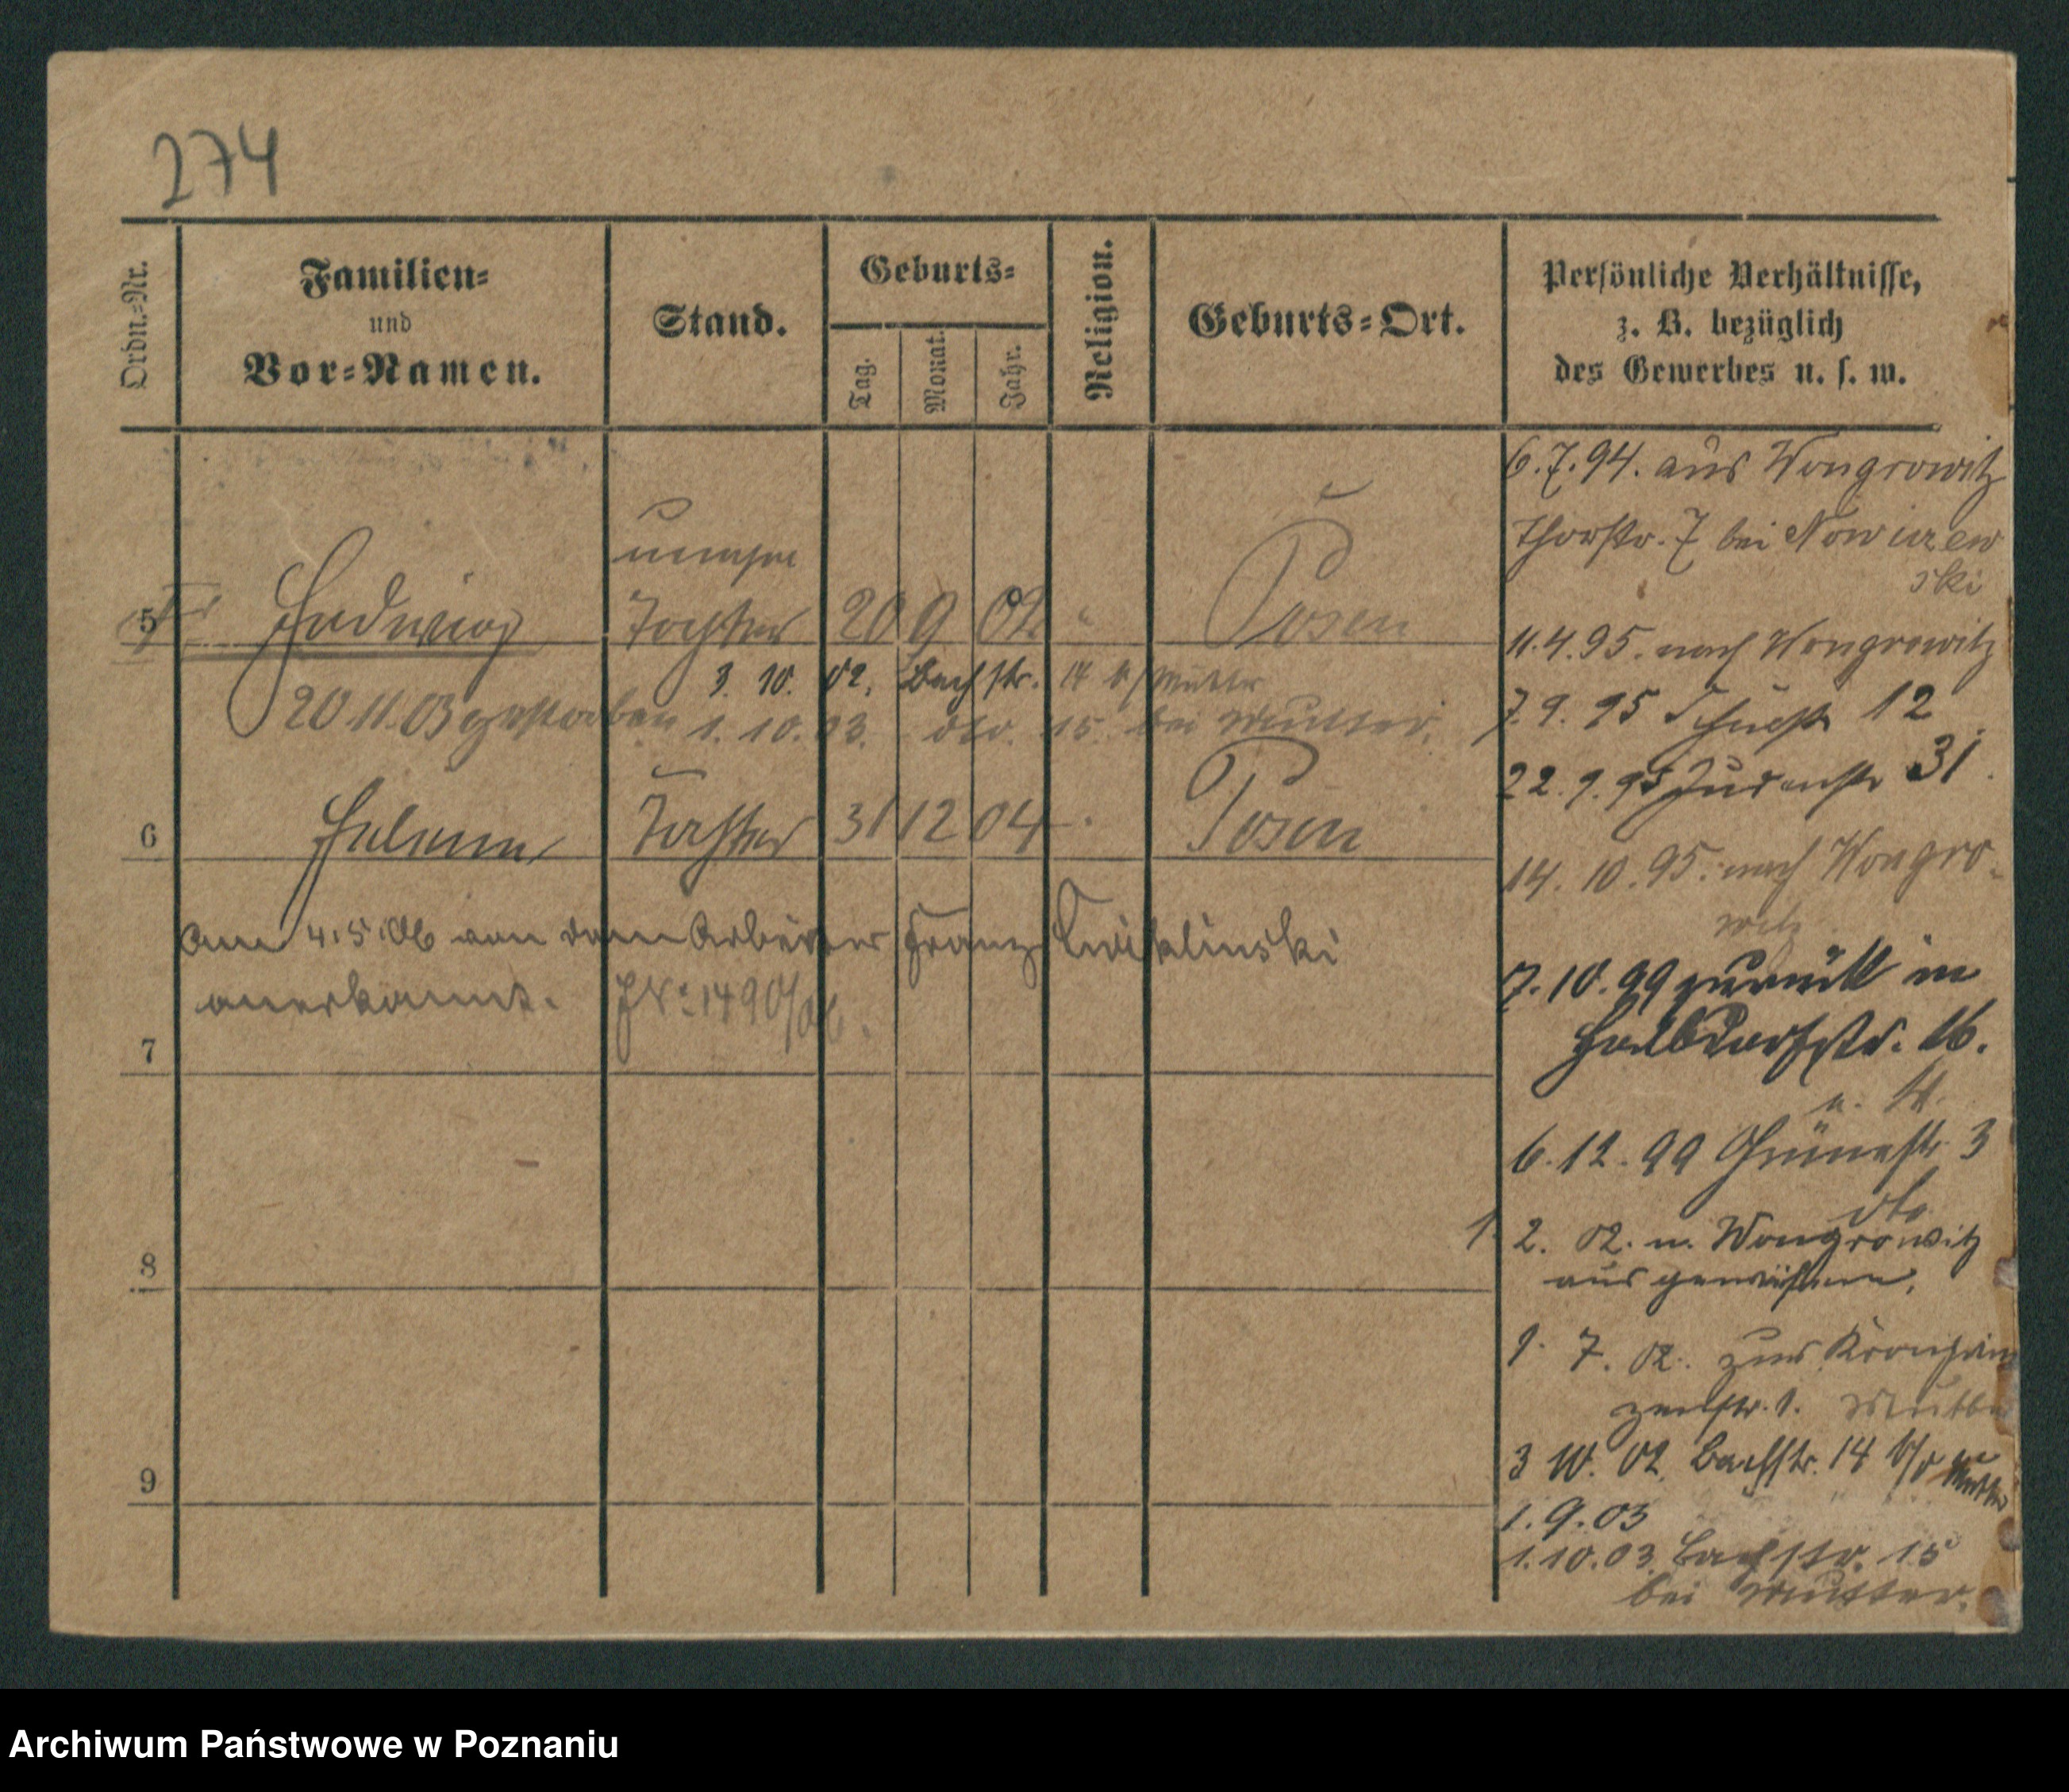 274
Ordn.-Nr.
Familien-
und
Vor-Namen.
Stand.
Geburts-
Tag.
Monat.
Jahr.
Religion.
Geburts-Ort.
Persönliche Verhältnisse,
z. B. bezüglich
des Gewerbes u. s. w.
5 Hedwig Tochter 20 9 02 " Posen
3. 10. 02. Bachstr. 14 b/Mutter
20 11.03 gestorben 1. 10. 03. dto. 15. bei Mutter.
6 Helene Tochter 31 12 04 Posen
Am 4.5.06 von dem Arbeiter Franz Cwiklinski
anerkannt. J.N° 1490/06.
7
8
9
6.7.94. aus Wongrowitz
Thorstr. 7 bei Nowizew
ski
11.4.95. nach Wongrowitz
7.9.95 12
22.9.95 Judenstr 31.
14. 10. 95. nach Wongro-
witz
7.10.99 zurück in
Halbdorfstr. 16.
6.12.99 Grünestr. 3
dto
1. 2. 02. n. Wongrowitz
aus
1. 7. 02. zur Kronprin
zenstr. 1. Mutter
3 10. 02. Bachstr. 14 Mutter
1.9.03
1.10.03. Bachstr. 15
bei Mutter.
Archiwum Państwowe w Poznaniu